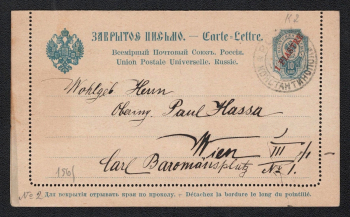 R2
ЗАКРЫТОЕ ПИСЬМО. — Carte-Lettre.
Всемірный Почтовый Союзъ. Россія.
Union Postale Universelle. Russie.
КОНСТАНТИНОПОЛЬ
Wohlgeb Herrn
Paul Hassa
Wien
III
Carl Baromäusplatz No 1.
No 2.
Для вскрытія оторвать край по проколу. — Détachez la bordure le long du pointillé.